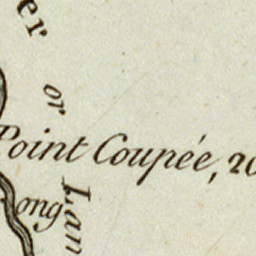 er
or
Point Coupée, 20
ong
Lan